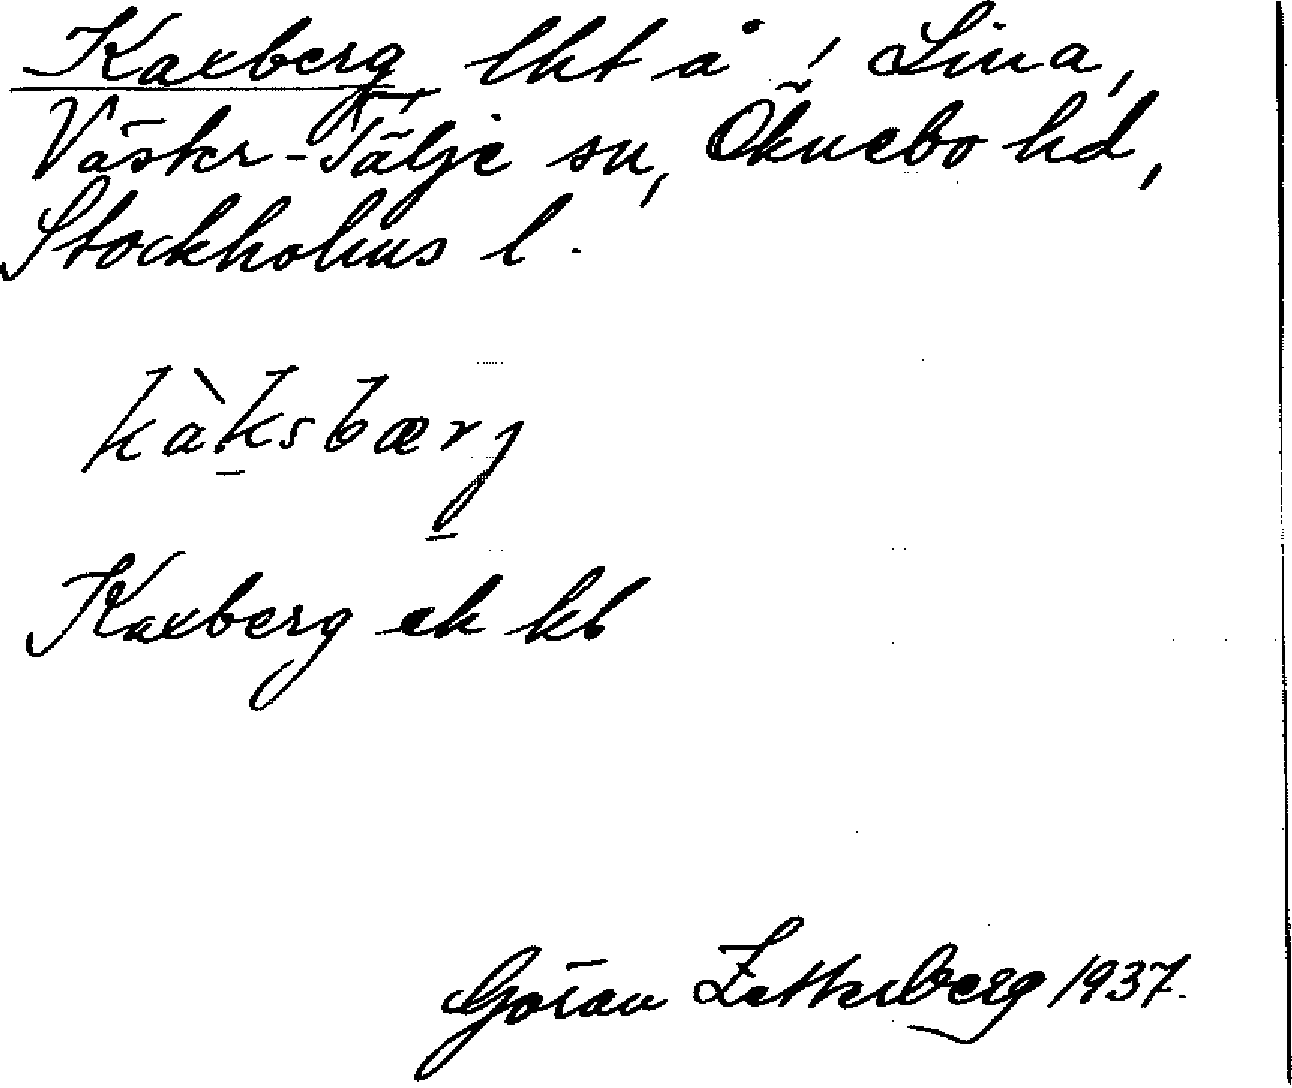 Kaxberg lht å i Lina,
Väster-Tälje sn, Öknebo hd,
Stockholms l.
kàksbærj
Kaxberg ek kb
Göran Zetterberg 1937.